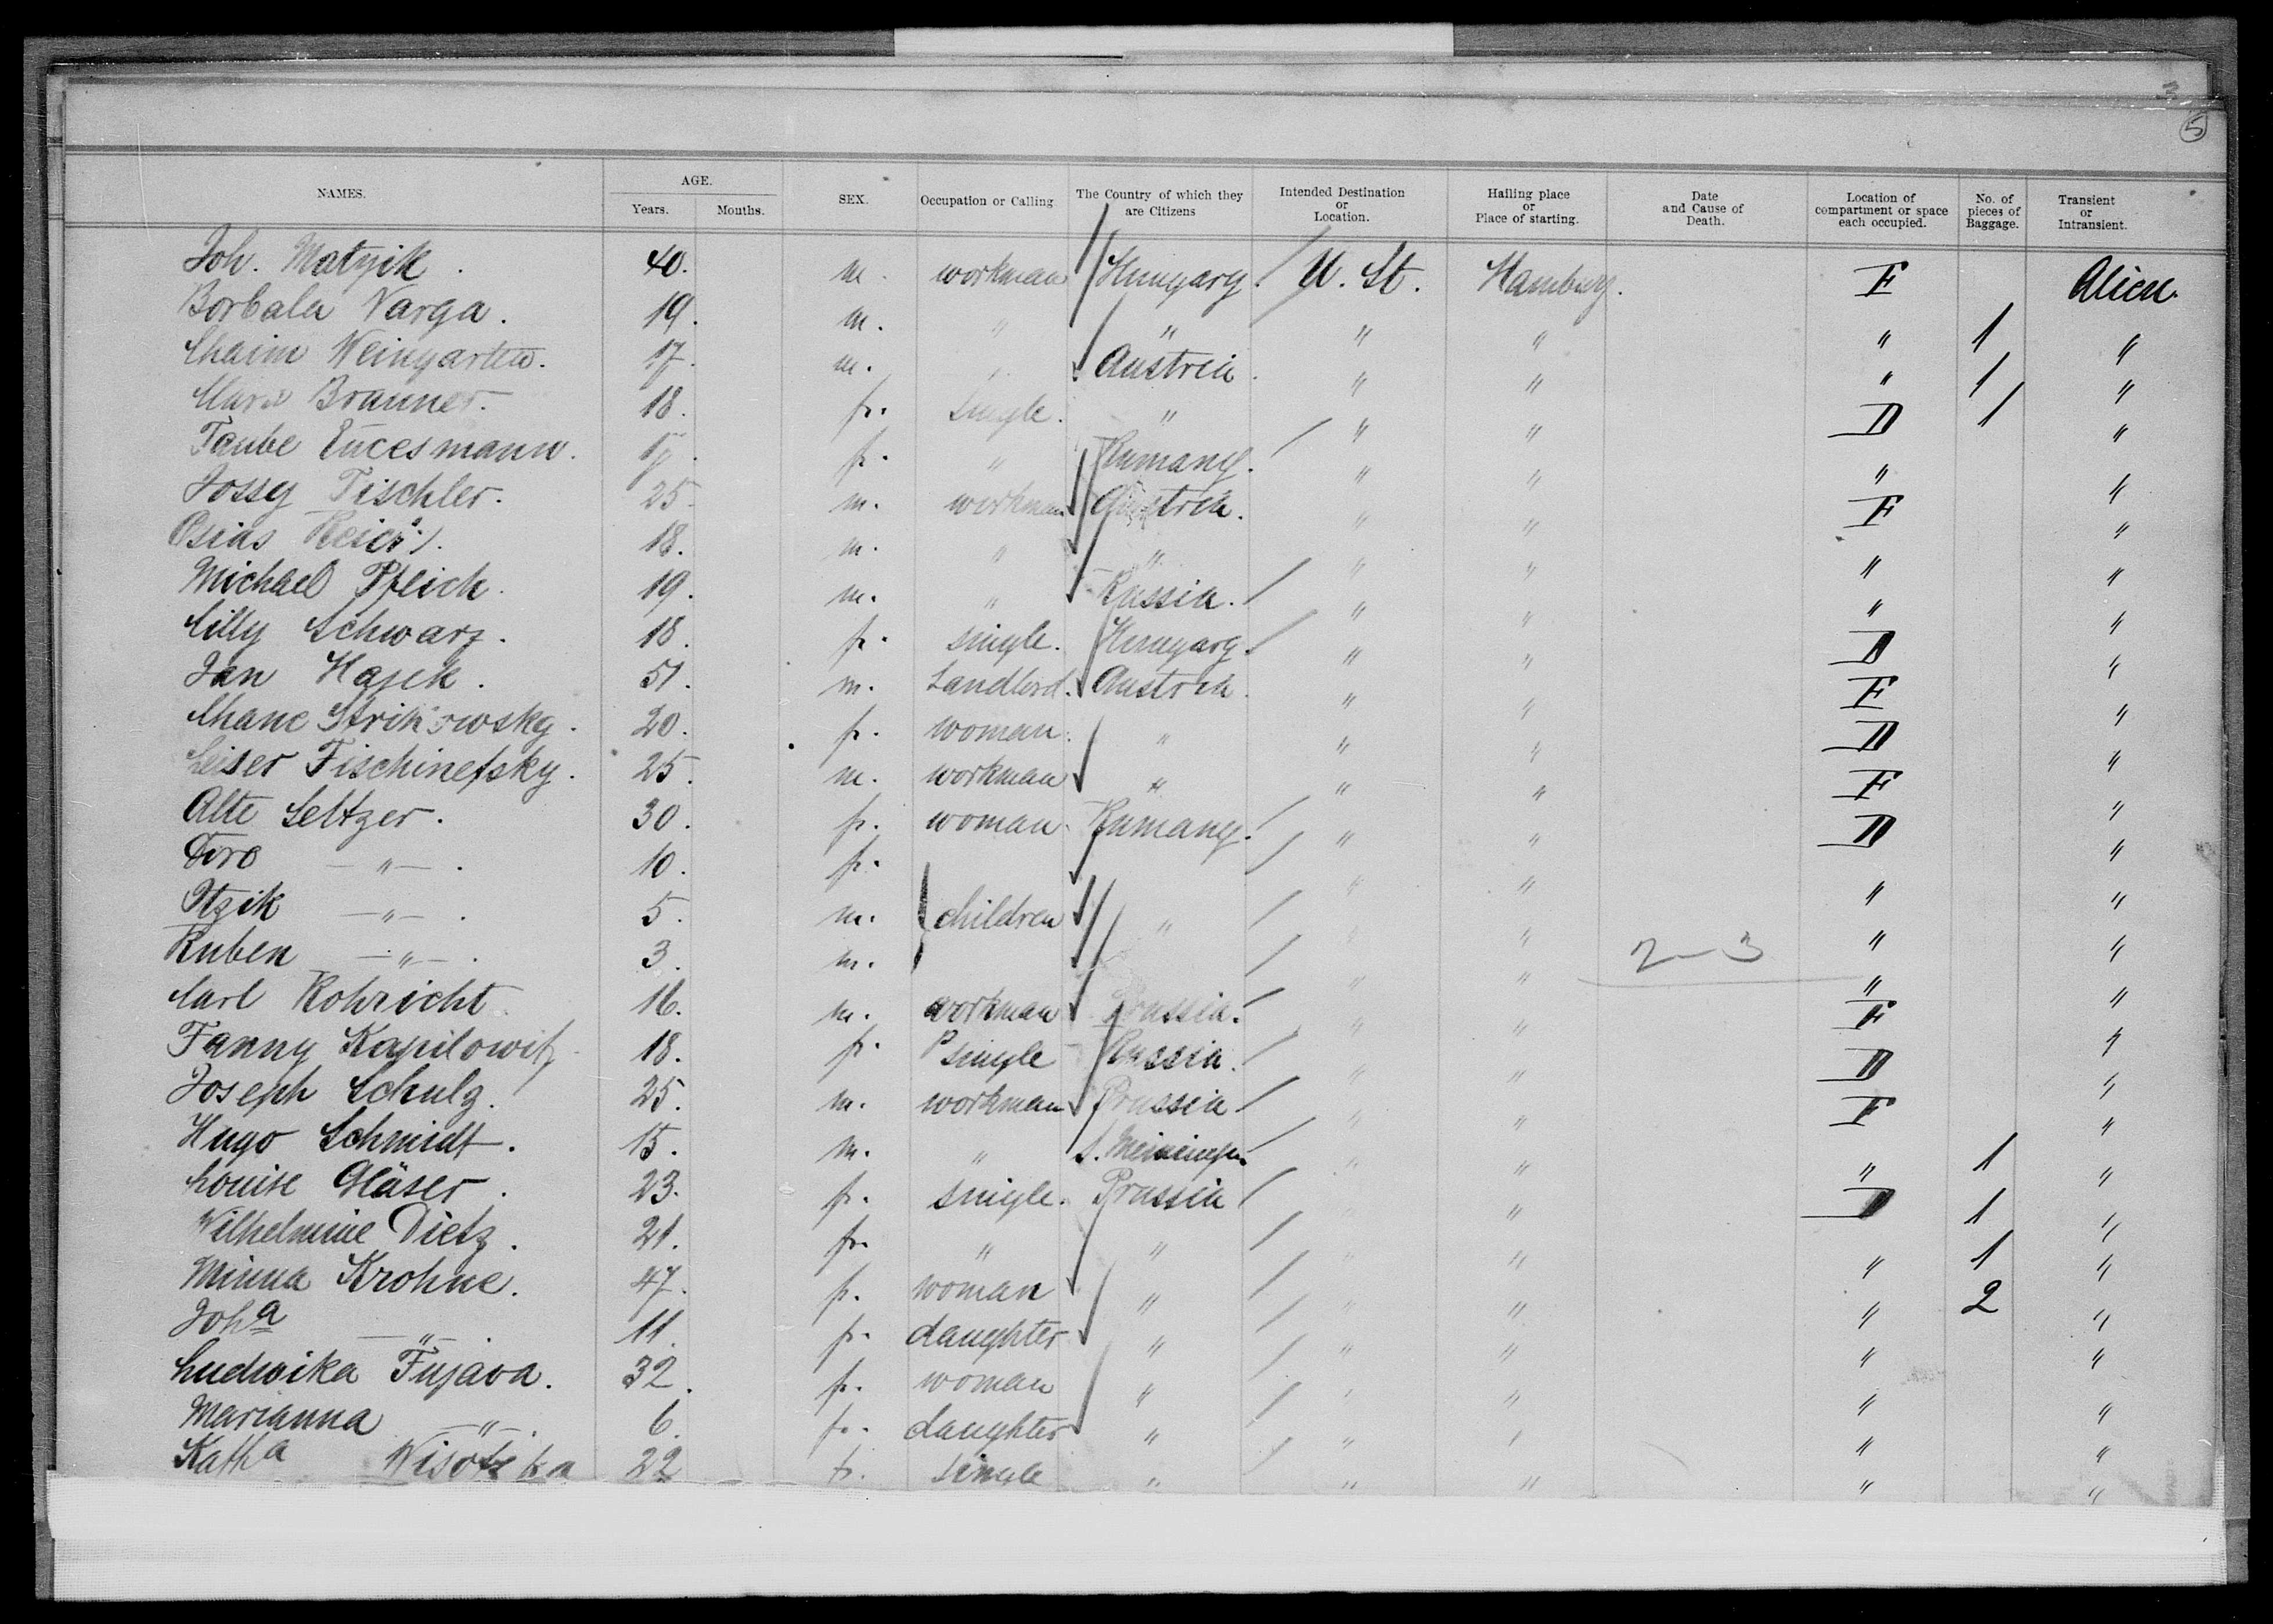 3
5
NAMES. AGE. SEX. Occupation or Calling The Country of which they are Citizens Intended Destination or Location. Hailing place or Place of starting. Date and Cause of Death. Location of compartment or space each occupied. No. of pieces of Baggage. Transient or Intransient.
Years. Months.
Joh. Matyik. 40. m. workman Hungary. U. St. Hamburg. F Alien.
Borbala Varga. 19. m. " " " " " 1 "
Chaim Weingarten. 17. m. Austria. " " " 1 "
Brauner. 18. fr. single. " " " D 1 "
Taube 17. fr. " Rumany. " " " "
Jossy Tischler. 25. m. workman Austria. " " F "
Osias 18. m. " " " " " "
Michael Pfeich. 19. m. " Russia. " " " "
Cilly Schwarz. 18. fr. single. Hungary. " " D "
Jan Hajek. 51. m. Landlord. Austria. " " F "
Chane 20. fr. woman. " " " D "
Leiser Fischinefsky. 25. m. workman " " " F "
Alte Seltzer. 30. fr. woman. Rumany. " " D "
Doro —"—. 10. fr. " " " "
Itzik —"—. 5. m. children " " " " "
Ruben —"—. 3. m. " " 2-3 " "
Carl Rohricht. 16. m. workman Prussia. " " F "
Fanny Kapilowitz 18. fr. single Russia. " " D "
Joseph Schulz. 25. m. workman Prussia " " F "
Hugo Schmidt. 15. m. " S. Meiningen " " " 1 "
Louise Gläser. 23. fr. single. Prussia " " D 1 "
Wilhelmine Dietz. 21. fr. " " " " " 1 "
Minna Krohne. 47. fr. woman " " " " 2 "
Joha —"— 11. fr. daughter " " " " "
Ludwika Fujava. 32. fr. woman " " " " "
Marianna —"—. 6. fr. daughter " " " " "
Katha Wisotzka 22 fr. single " " " " "